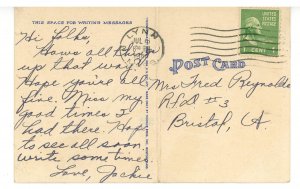 THIS SPACE FOR WRITING MESSAGES
Hi Folks
Hows all things
up that way?
Hope you're all
fine. Miss my
good times I
had there. Hope
to see all soon
write some times.
Love, Jackie
LYNN
POST CARD
1 CENT
Mrs Fred Reynolds
RFD #3
Bristol, Ct.